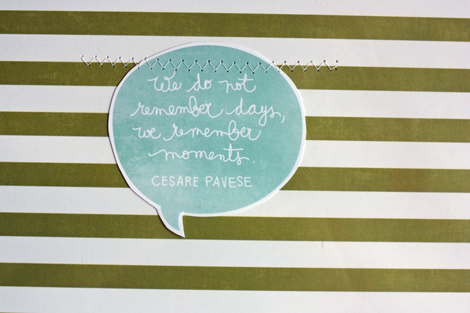 We do not
remember days,
we remember
moments.
CESARE PAVESE